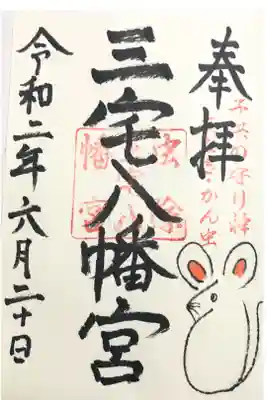 奉拝
子供の守り神
かん虫
三宅八幡宮
虫除
八幡宮
令和二年六月二十日